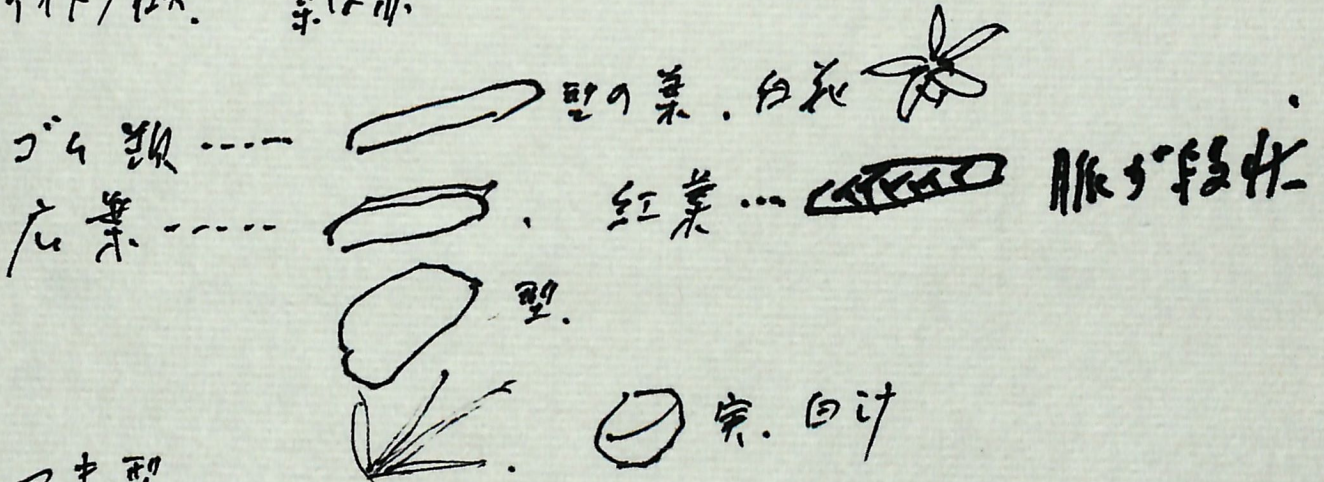 ゴム類‥‥ 型の葉．白花
広葉‥‥‥．紅葉… 脈が段状
型．
実．白汁
型